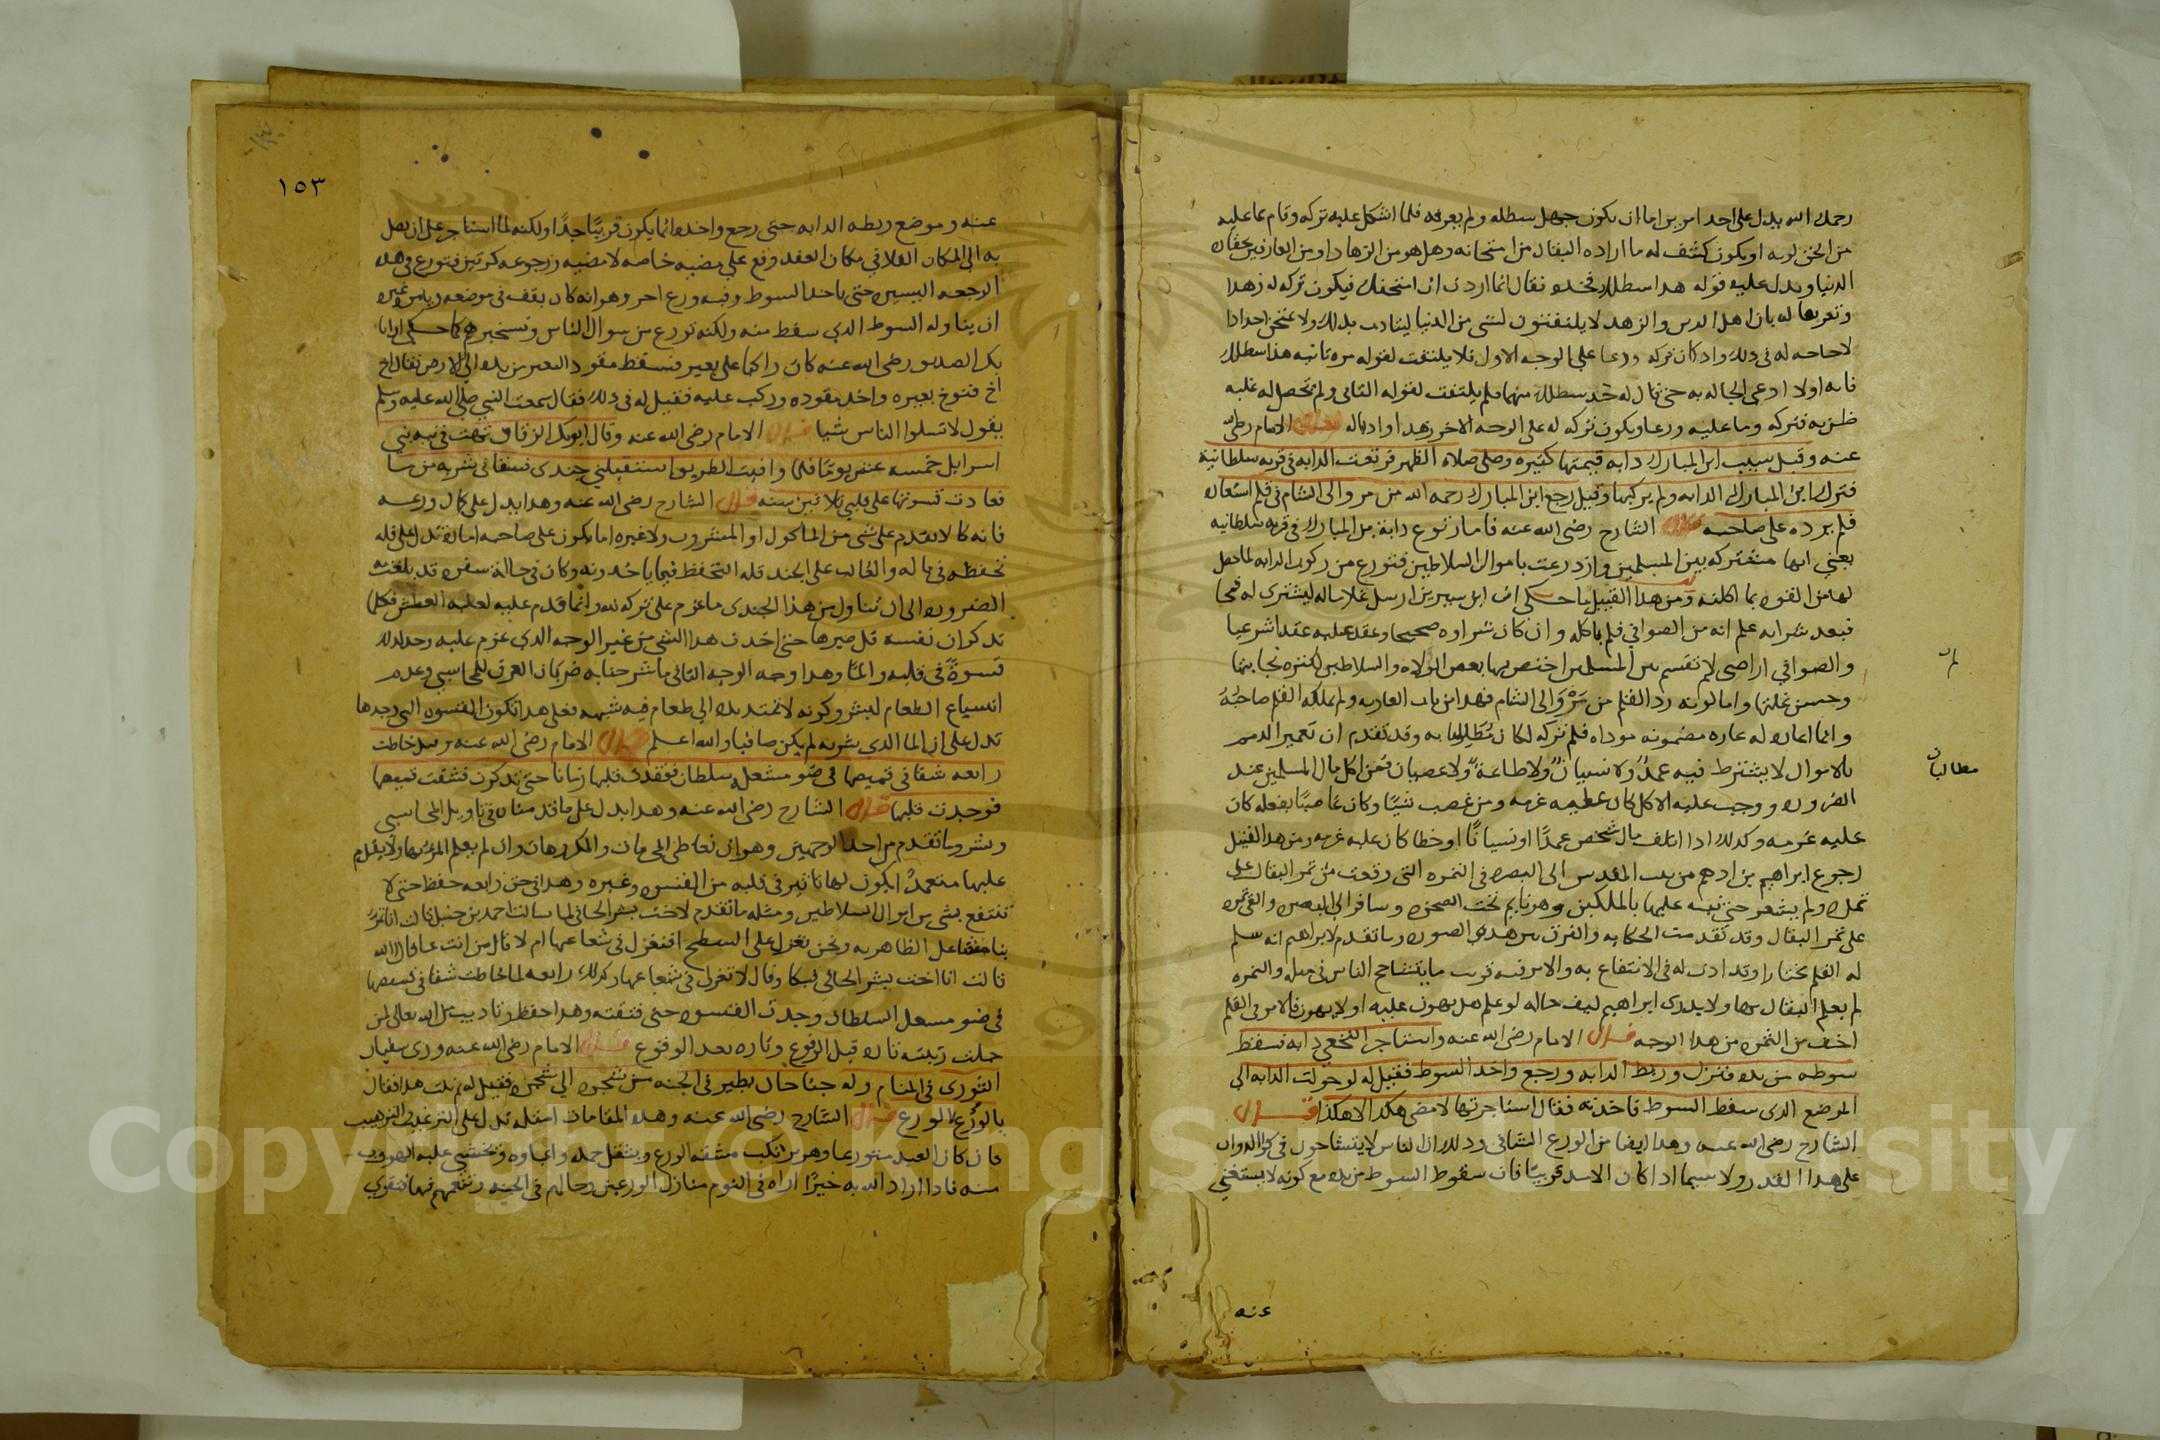 رحمك الله يدل على احد امرين اما ان يكون جهل سطله ولم يعرفه فلما اشكل عليه تركه وقام بما عليه
من الحق لربه او يكون كشف له ما اراده البقال من امتحانه وهل هو من الزهاد او من العارفين بحقاره
الدنيا ويدل عليه قوله هذا سطلك فخذه فقال انما اردت ان امتحنك فيكون تركه له زهدا
وتعريفا له بان اهل الدين والزهد لا يلتفتون لشي من الدنيا ليتادب بذلك ولا يمتحن احدا
لا حاجه له في ذلك واذ كان تركه ورعا على الوجه الاول فلا يلتفت لقوله مره ثانيه هذا سطلك
فانه اولا ادعى الجهاله به حتى قال له خذ سطلك منهما فلم يلتفت لقوله الثاني ولم يحصل له غلبه
ظن به فتركه وما عليه ورعا ويكون تركه له على الوجه الاخر زهدا وادبا له قال الامام رضي الله
عنه وقيل سيب ابن المبارك دابه قيمتها كثيره وصلى صلاه الظهر فرتعت الدابه في قريه سلطانية
فترك ابن المبارك الدابه ولم يركبها وقيل رجع ابن المبارك رحمه الله من مرو الى الشام في قلم استعاره
فلم يرده على صاحبه قال الشارح رضي الله عنه فاما رتوع دابة بن المبارك في قريه سلطانيه
يعني انها مشتركه بين المسلمين وازدرعت باموال السلاطين فتورع من ركوب الدابه لما حصل
لها من القوه بما اكلته ومن هذا القبيل ما حكي ان ابن سيرين ارسل غلاما له ليشتري له قمحا
فبعد شرايه علم انه من الصوافي فلم ياكله وان كان شراوه صحيحا وعقد عليه عقدا شرعيا
والصوافي اراضي لم تقسم بين المسلمين اختص بها بعض الولاه والسلاطين لكثره نجابتها
وحسن غلتها واما كونه رد القلم من مرو الى الشام فهذا من باب العاريه ولم يملكه القلم صاحبه
وانما اعاره له عاره مضمونه موداه فلم تركه لكان مطلوبا به وقد تقدم ان تعمير الذمم
بالاموال لا يشترط فيه عمد ولا نسيان ولا طاعة ولا عصيان فمن اكل مال المسلمين عند
الضروره ووجب عليه الاكل كان عليه غرمه ومن غصب شيئا وكان عاصيا بفعله كان
عليه غرمه وكذلك اذا اتلف مال شخص عمدا او نسيانا او خطا كان عليه غرمه ومن هذا القبيل
رجوع ابراهيم بن ادهم من بيت المقدس الى البصره في التمره التي وقعت من تمر البقال على
تمره ولم يشعر حتى نبه عليها بالملكين وهو نايم تحت الصخره وسافر الى البصره والقى تمره
على تمر البقال وقد تقدمت الحكايه والفرق بين هذه الصوره وما تقدم لابراهيم انه سلم
له القلم مختارا وقد اذن له في الانتفاع به والامر فيه قريب ما يتشاحح الناس في مثله والتمره
لم يعلم البقال بها ولا يدري ابراهيم كيف حاله لو علم هل يهون عليه او لا يهون فالامر في القلم
اخف من التمره من هذا الوجه قال الامام رضي الله عنه واستاجر النخعي دابه فسقط
سوطه من يده فنزل وربط الدابه ورجع واخذ السوط فقيل له لو حولت الدابه الى
الموضع الذي سقط السوط فاخذته فقال استاجرتها لامضي هكذا لا هكذا قال
الشارح رضي الله عنه وهذا ايضا من الورع الشافي وذلك ان الناس لا يتشاحون في كرا الدواب
على هذا القدر ولا سيما اذا كان الامد قريبا فان سقوط السوط من يده مع كونه لا يستغني
عنه
مطالبا
١٥٣
عنه وموضع ربطه الدابه حتى رجع واخذه انما يكون قريبا جدا ولكنه لما استاجر على ان يصل
به الى المكان الفلاني مكان العقد وقع على مضيه خاصه لا مضيه ورجوعه كرتين فتورع في هذه
الرجعه اليسيره حتى ياخذ السوط وفيه ورع اخر وهو انه كان يقف في موضعه ويامر غيره
ان يناوله السوط الذي سقط منه ولكنه تورع من سوال الناس وتسخيرهم كما حكي ان ابا
بكر الصديق رضي الله عنه كان راكبا على بعير فسقط مقود البعير من يده الى الارض فقال اخ
اخ فنوخ بعيره واخذ مقوده وركب عليه فقيل له في ذلك فقال سمعت النبي صلى الله عليه وسلم
يقول لا تسلوا الناس شيا قال الامام رضي الله عنه وقال ابو بكر الزقاق تهت في تيه بني
اسرايل خمسه عشر يوما فلما وافيت الطريق استقبلني جندي فسقاني شربه من ما
فعادت قسوتها على قلبي ثلاثين سنه قال الشارح رضي الله عنه وهذا يدل على كمال ورعه
فانه كان لا يقدم على شي من الماكول او المشروب ولا غيره اما يكون على صاحبه امارة تدل على قله
تحفظه في ماله والغالب على الجند قله التحفظ فيما ياخذونه وكان في حالة سفره قد بلغت به
الضروره الى ان تناول من هذا الجندي ما عزم على تركه لله وانما قدم عليه لغلبه العطش فكلما
تذكر ان نفسه قل صبرها حتى اخذت هذا الشي من غير الوجه الذي عزم عليه وجد لذلك
قسوة في قلبه والما وهذا وجه الوجه الثاني ما شرحنا به ضربان العرق للمحاسبي وعدم
انسياغ الطعام لبشر وكونه لا تمتد يده الى طعام فيه شبهه فعلى هذا تكون القسوه التي وجدها
تدل على ان الما الذي شربه لم يكن صافيا والله اعلم قال الامام رضي الله عنه وقيل خاطت
رابعه شقا في قميصها في ضو مشعله سلطان ففقدت قلبها زمانا حتى تذكرت فشقت قميصها
فوجدت قلبها قال الشارح رضي الله عنه وهذا يدل على ما قدمناه في تاويل المحاسبي
وبشر وما تقدم من احد الوجهين وهو ان تعاطي المحرمات والمكروهات وان لم يعلم المر بها ولا يقدم
عليها متعمدا يكون لها تاثير في قلبه من القسوه وغيره وهذا في حق رابعه حفظ حتى لا
تنتفع بشي من اموال السلاطين ومثله ما تقدم لاخت بشر الحافي لما سالت احمد بن حنبل قالت انا تمر
بنا مشاعل الظاهريه ونحن نغزل على السطح افنغزل في شعاعها ام لا قال من انت عافاك الله
قالت انا اخت بشر الحافي فبكا وقال لا تغزلي في شعاعها وكذلك رابعه لما خاطت شقا في قميصها
في ضو مشعل السلطان وجدت القسوه حتى فتقته وهذا حفظ وتاديب من الله تعالى لمن
جلت رتبته تاره قبل الوقوع وتاره بعد الوقوع قال الامام رضي الله عنه وري سفيان
الثوري في المنام وله جناحان يطير في الجنه من شجره الى شجره فقيل له بم نلت هذا فقال
بالورع الورع قال الشارح رضي الله عنه وهذه المقامات امثله تدل على الترغيب والترهيب
فان كان العبد متورعا وهو يرتكب مشقه الورع ويثقل حمله واعباوه ويخشى عليه الهروب
منه فاذا اراد الله به خيرا اراه في النوم منازل الورعين وحالهم في الجنه وتنعمهم فيها فتقوى